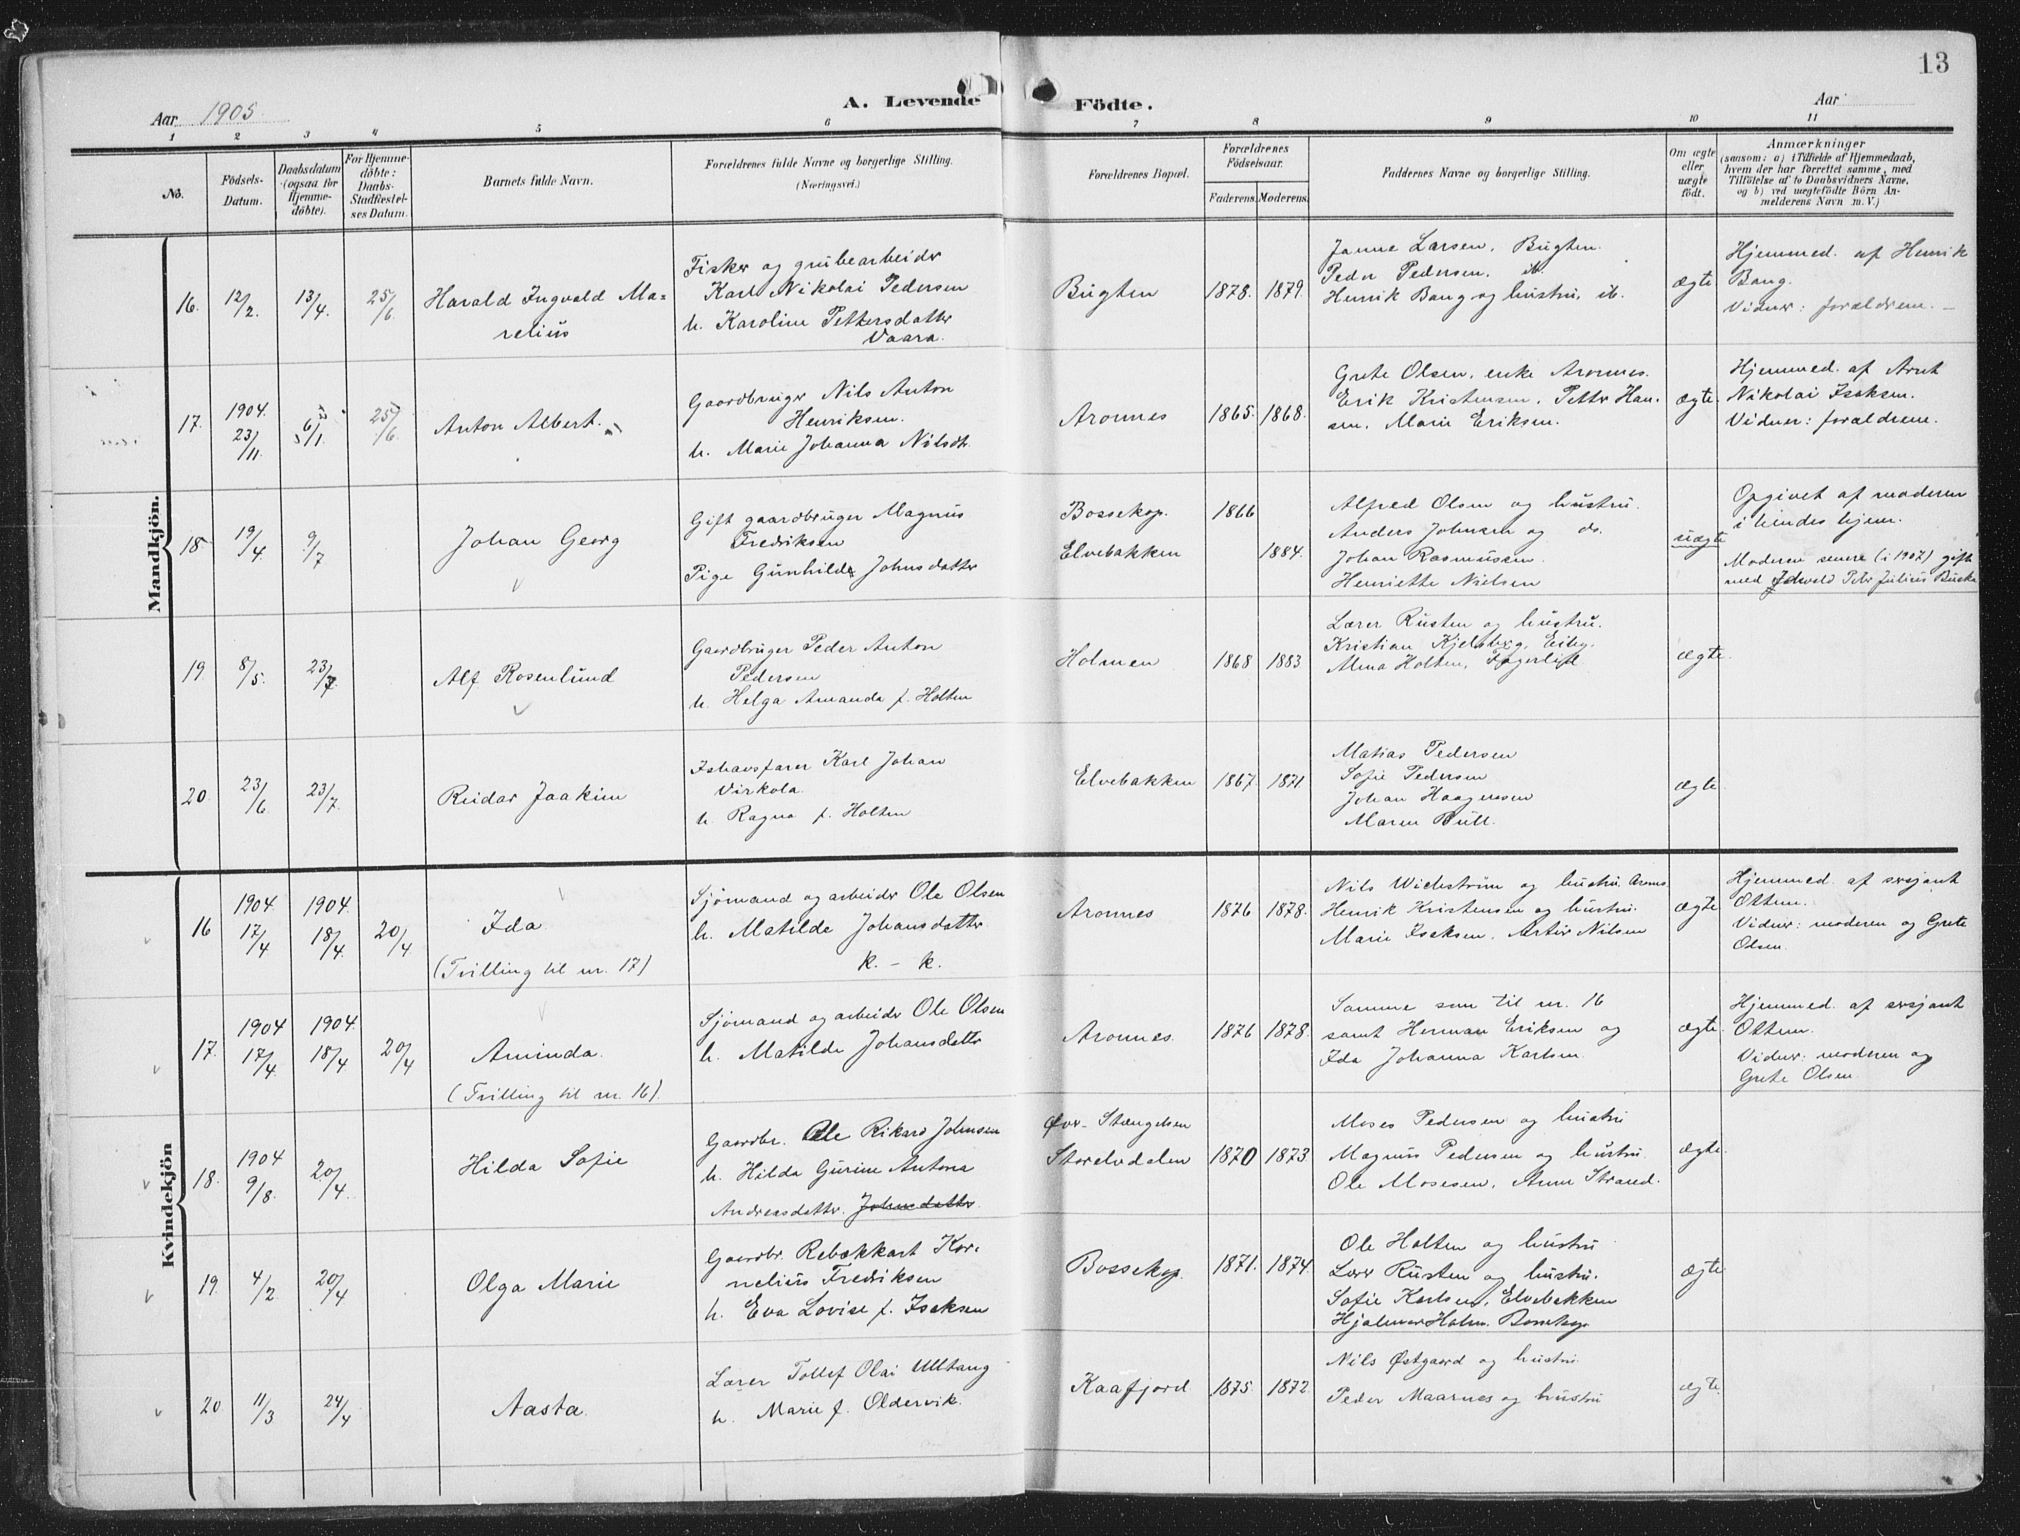 13
A. Levende Födte.
Aar 1905
Aar
1 2 3 4 5 6 7 8 9 10 11
No.
Födsels-Datum.
Daabsdatum (ogsaa for Hjemme-döbte).
For Hjemme-döbte: Daabs-Stadfæstel-ses Datum.
Barnets fulde Navn.
Forældrenes fulde Navne og borgerlige Stilling. (Næringsvei.)
Forældrenes Bopæl.
Forældrenes Födselsaar.
Faderens. Moderens.
Faddernes Navne og borgerlige Stilling.
Om ægte eller uægte födt.
Anmærkninger
(saasom: a) i Tilfælde af Hjemmedaab, hvem der har forrettet samme, med Tilföielse af to Daabsvidners Navne, og b) ved uægtefödte Börn An-melderens Navn m. V.)
Mandkjön.
16. 12/2. 13/4. 25/6.
Harald Ingvald Ma=
relius
Fisker og grubearbeider
Karl Nikolai Pedersen
h. Karoline Pettersdatter
Vaara.
Bugten 1878. 1879.
Janne Larsen, Bugten.
Peder Pedersen, ib.
Henrik Bang og hustru, ib.
ægte
Hjemmed. af Henrik
Bang.
Vidner: forældrene. —
17. 1904. 23/11 6/1. 25/6.
Anton Albert.
Gaardbruger Nils Anton
Henriksen.
h. Marie Johanna Nilsdtr.
Aronnes 1865. 1868.
Grete Olsen, enke Aronnes.
Erik Kristensen, Petter Han-
sen, Marie Eriksen.
ægte.
Hjemmed. af Arnt
Nikolai Isaksen.
Vidner: forældrene.
18 19/4 9/7
Johan Georg
Gift gaardbruger Magnus
Fredriksen
Pige Gunhilde Johnsdatter
Bossekop. 1866
Elvebakken 1884.
Alfred Olsen og hustru.
Anders Johnsen og do.
Johan Rasmussen.
Henriette Nielsen
uægte
Opgivet af moderen
i hendes hjem.
Moderen senere (i 1907) gift
med Petr Julius
19 8/5. 23/7.
Alf Rosenlund
Gaardbruger Peder Anton
Pedersen
h. Helga Amanda f. Holten
Holmen 1868 1883
Lærer Rusten og hustru.
Kristian Kjelsberg, Eiby.
Alma Holten, Fagerlid
ægte.
20 23/6 23/7.
Reidar Jaakim
Ishavsfarer Karl Johan
Virkola.
h. Ragna f. Holten
Elvebakken 1867. 1871.
Matias Pedersen
Sofie Pedersen
Johan Haagensen
Maren Bull.
ægte.
Kvindekjön
16 1904. 17/4 1904. 18/4 20/4
Ida
(Tvilling til nr. 17)
Sjømand og arbeider Ole Olsen
h. Matilde Johansdatter
k. - k.
Aronnes 1876 1878.
Nils Wickstrøm og hustru. Arons.
Henrik Kristensen og hustru.
Marie Isaksen, Artur Nilsen
ægte
Hjemmed. af sersjant
Ottem.
Vidner: moderen og Grete
Olsen.
17. 1904 17/4. 1904. 18/4 20/4
Aminda.
(Tvilling til nr. 16).
Sjømand og arbeider Ole Olsen
h. Matilde Johansdatter
Aronnes. 1876 1878.
Samme som til nr. 16
samt Herman Eriksen og
Ida Johanna Karlsen.
ægte.
Hjemmed. af sersjant
Ottem.
Vidner: moderen og
Grete Olsen.
18. 1904 9/8. 20/4.
Hilda Sofie
Gaardbr. Ole Rikard Johnsen
h. Hilda Gurine Antona
Andreasdatter. Johnsdatter.
Øvr. Stængelsen
Storelvdalen 1870 1873
Moses Pedersen og hustru
Magnus Pedersen og hustru.
Ole Mosesen, Anne Strand.
ægte.
19. 4/2 20/4
Olga Marie
Gaardbr. Rebækkart Kor-
nelius Fredriksen
h. Eva Lovise f. Isaksen
Bossekop. 1871. 1874
Ole Holten og hustru
Lærer Rusten og hustru.
Sofie Karlsen, Elvebakken
Hjalmar Holm. Bossekop
ægte
20 11/3 24/4
Aasta.
Lærer Tollef Olai Ulltang
h. Marie f. Oldervik.
Kaafjord 1875. 1872.
Nils Østgaard og hustru.
Peder Maarnes og hustru
ægte.